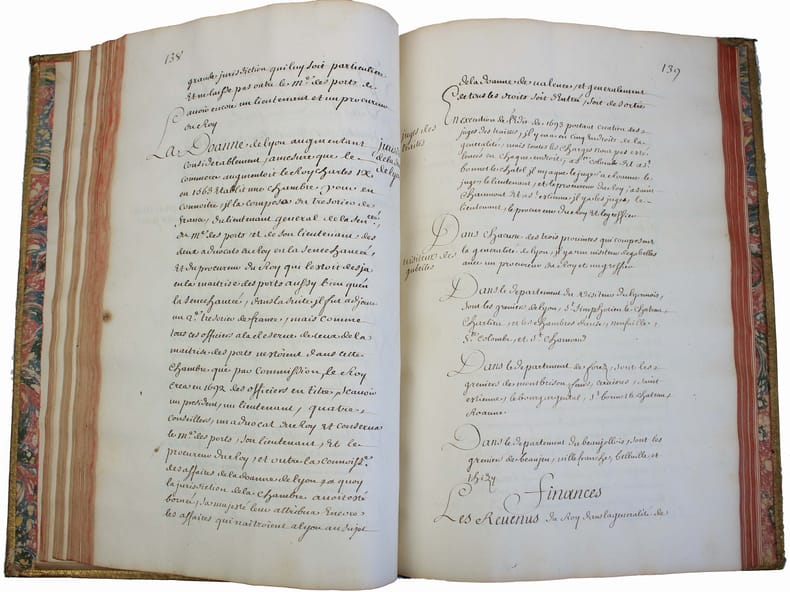 138
grande jurisdiction qui luy soit particuliere
Et ne laisse pas outre le m.e des ports de
avoir encore un lieutenant et un procureur
du Roy
La Doanne de lyon augmentant
considerablement, a mesure que le
commerce augmentoit le Roy Charles IX
en 1563 Etablit une chambre, pour en
connoitre, il la composa du tresorier de
france, du lieutenant general de la sen.cée
du m.e des ports et de son lieutenant des
deux advocats du Roy en la senechaucée,
Et du procureur du Roy qui l'estoit desja
en la maitrise des ports aussy bien qu'en
la senechaucée, dans la suite, il fut adjoint
un 2.e tresorier de france, mais comme
tous ces officiers a la reserve de ceux de la
maitrise des ports n'estoient dans cette
chambre que par commission, le Roy
crea en 1692 des officiers en titre, scavoir
un president, un lieutenant, quatre
conseillers, un advocat du Roy Et conserva
le m.e des ports, son lieutenant, Et le
procureur du Roy, et outre la connoiss.ce
des affaires de la doanne de lyon a quoy
la jurisdiction de la chambre avoit esté
bornée, sa majesté leur attribua Encore
les affaires qui naitroient a lyon au sujet
139
de la doanne de valence, et generalement
de tous les droits soit d'entrée, soit de sortie
juges des
traites
En execution de l'Edit de 1693 portant creation des
juges des traites, il y en a en cinq endroits de la
generalité, mais toutes les charges n'ont pas esté
levées en chaque endroit, a S.te colombe et a S.t
bonnet le chatel, il n'y a que le juge, a
le juge, le lieutenant, et le procureur du Roy, a saint
chaumont et a S.t estienne, il y a les juges, le
lieutenant, le procureur du Roy et le greffier
visiteurs des
gabelles
Dans chacune des trois provinces qui composent
la generalité de lyon, il y a un visiteur des gabelles
avec un procureur du Roy et un greffier
Dans le departement du visiteur du lyonnois,
sont les greniers de lyon, S.t Simphorien le chateau,
Charlieu, et les chambres neufville,
S.te Colombe, et S.t Chomond
Dans le departement de forez, sont les
greniers de montbrison, feurs, cervieres, saint
estienne, le bourg argental, S.t bonnet le chateau
Roanne
Dans le departement du beaujollois, sont les
greniers de beaujeu, villefranche, belleville, et
thizy
Finances
Les Revenus du Roy dans la generalité de